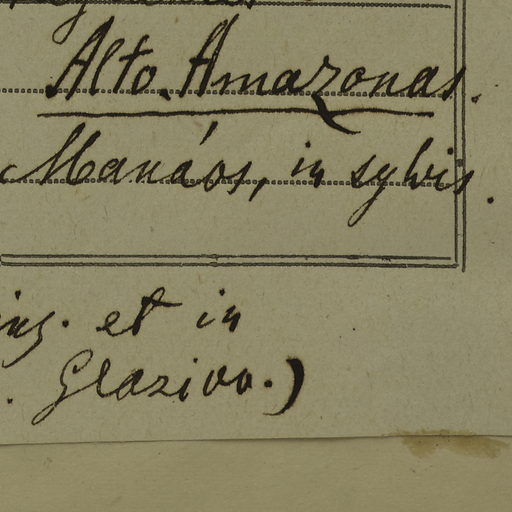 Alto Amazonas.
Manáos, in sylvis.
et in
Glaziou.)